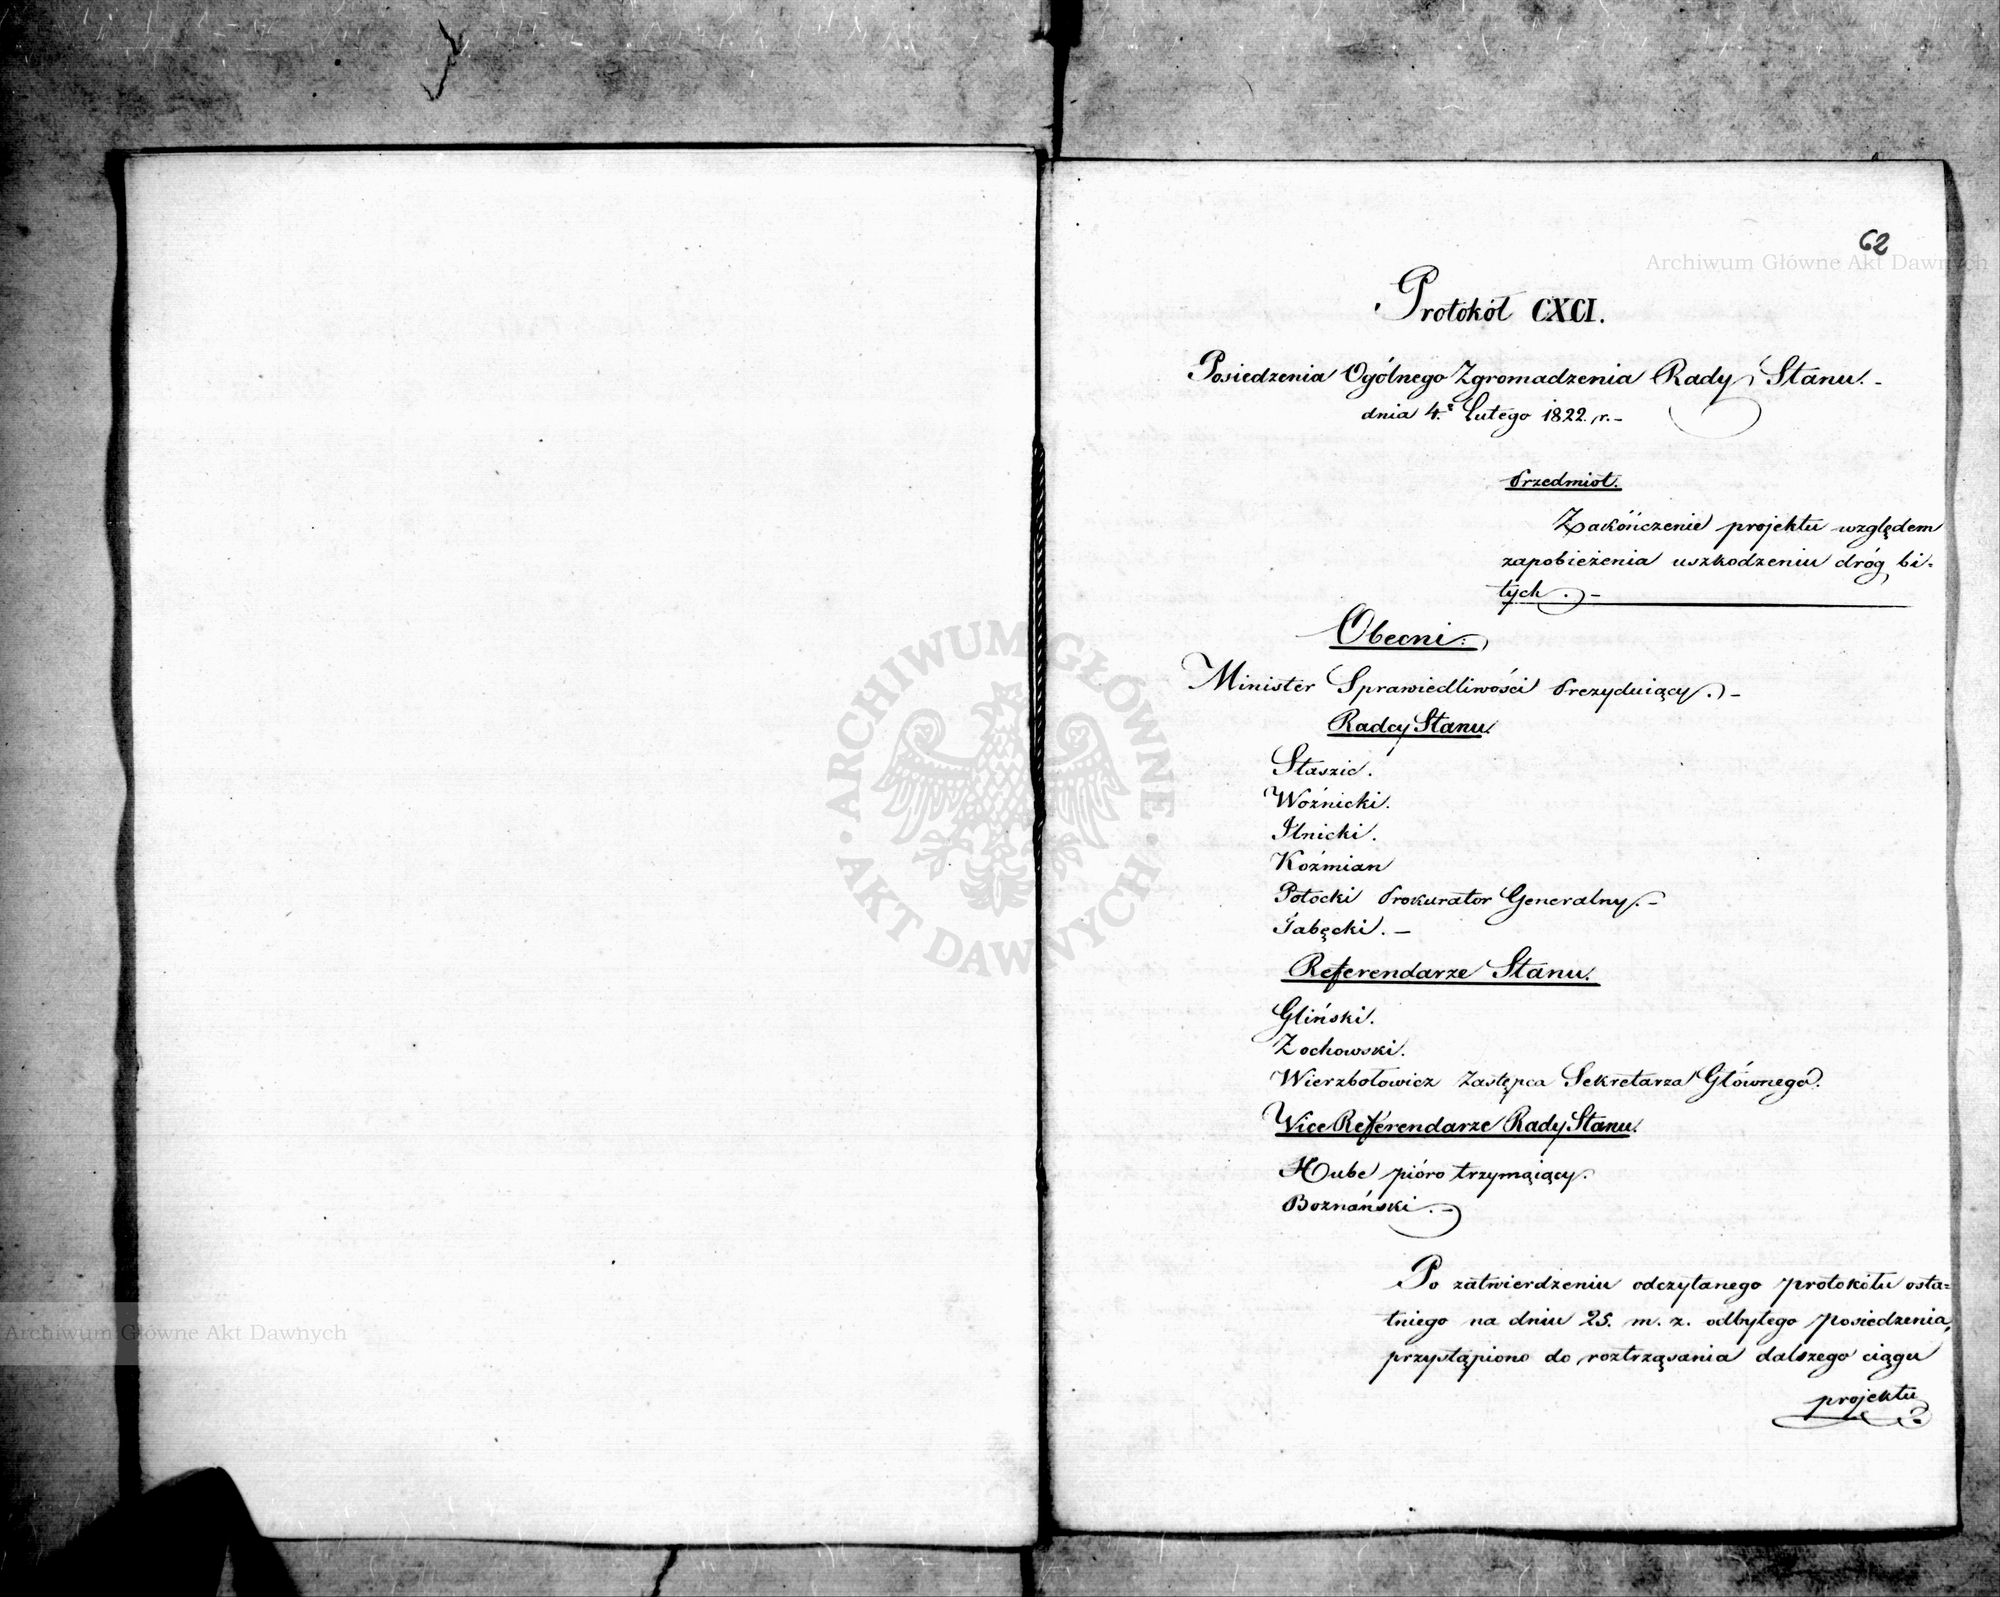 62
Archiwum Główne Akt Dawnych
Protokół CXCI.
Posiedzenia Ogólnego Zgromadzenia Rady Stanu. -
dnia 4. Lutego 1822. r. -
Przedmiot.
Zakończenie projektu względem
zapobieżenia uszkodzeniu dróg bi=
tych. -
Obecni:
Minister Sprawiedliwości Prezyduiący. -
Radcy Stanu.
Staszic.
Woźnicki.
Ilnicki.
Koźmian
Potocki Prokurator Generalny. -
Tabęcki. -
Referendarze Stanu.
Gliński.
Żochowski.
Wierzbołowicz Zastępca Sekretarza Głównego.
Vice Referendarze Rady Stanu.
Hube pióro trzymaiący.
Boznański. -
Po zatwierdzeniu odczytanego protokółu osta=
tniego na dniu 25. m. z. odbytego posiedzenia,
przystąpiono do roztrząsania dalszego ciągu
projektu
ARCHIWUM GŁÓWNE · AKT DAWNYCH ·
Archiwum Główne Akt Dawnych